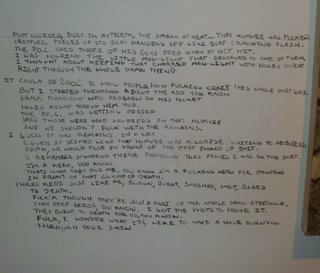 DUST COVERED, DUST IN MY TEETH, THE SMELL OF MEAT... THAT HUMVEE WAS FUCKED,
CRIPPLED, PIECES OF ITS BODY HANGING OFF LIKE BURT CRACKLING FLESH.
THE POC, SAID THREE OF HIS GUYS DIED WHEN IT GOT HIT.
I WAS HOLDING THE LITTLE MAG-LIGHT THAT BELONGED TO ONE OF THEM
I THOUGHT ABOUT KEEPING THAT CHARRED MAG-LIGHT WITH HOLES BURNT
RIGHT THROUGH THE WHOLE DAMN THING
IT COULD BE 'COOL' TO SHEW PEOPLE HOW FUCKING CRAZY THIS WHOLE SHIT WAS.
BUT I STARTED THINKING ABOUT THE KID YOU KNOW?
DAMN FLASHLIGHT WAS PROBABLY IN HIS POCKET
HOLES RIGHT THROUGH HIM TOO.
THE POC, WAS GETTING PISSED
SAID THOSE WERE GOOD SOLDIERS IN THAT HUMVEE
AND WE SHOULDN'T FUCK WITH THE REMAINS.
I GUESS IT WAS REMAINS, I'M A RAT
I GUESS IT SEEMED LIKE THAT HUMVEE WAS A CORPSE WAITING TO BE
DAMN, WE WOULD POSE IN FRONT OF THE MOST FUCKED UP SHIT
I REMEMBER STANDING THERE THINKING THIS PROVES I WAS IN THE SHIT.
I'M A HERO, YOU KNOW
THATS WHAT THEY TOLD ME, YOU KNOW I'M A FUCKENG HERO FOR STANDING
IN FRONT OF THAT CLUMP OF DEATH.
THREE KIDS JUST LIKE ME, BLOWN, BURNT, SMASHED, SHOT, BLEED
TO DEATH.
FUCK'M THOUGH THEY'RE JUST A PART OF THE WHOLE DAMN SPECTACLE,
THEY DIED HEROS YOU KNOW. I GOT THE PHOTO TO PROVE IT.
THEY BURNT TO DEATH FOR US, YOU KNOW.
FUCK, I WONDER WHAT IT'S LIKE TO HAVE A HOLE BURNING
THROUGH YOUR SKIN